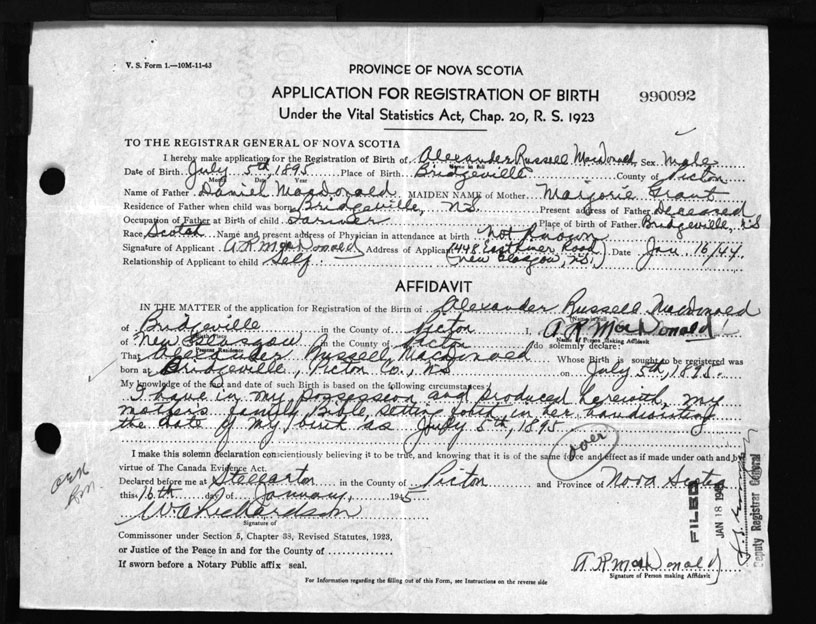 V. S. Form 1.—10M-11-43
PROVINCE OF NOVA SCOTIA
APPLICATION FOR REGISTRATION OF BIRTH
990092
Under the Vital Statistics Act, Chap. 20, R. S. 1923
TO THE REGISTRAR GENERAL OF NOVA SCOTIA
I hereby make application for the Registration of Birth of Alexander Russell MacDonald Sex Male
Name in full
Date of Birth July 5th 1895 Place of Birth Bridgeville County of Pictou
Month Date Year
Name of Father Daniel MacDonald MAIDEN NAME of Mother Marjorie Grant
Residence of Father when child was born Bridgeville, N.S. Present address of Father Deceased
Occupation of Father at Birth of child Farmer Place of birth of Father Bridgeville, N.S
Race Scotch Name and present address of Physician in attendance at birth Not Known
Signature of Applicant A R MacDonald Address of Applicant 1448 East River Road Date Jan. 16/44.
Relationship of Applicant to child Self (New Glasgow, N.S.)
AFFIDAVIT
IN THE MATTER of the application for Registration of the Birth of Alexander Russell MacDonald
Name in full
of Bridgeville in the County of Pictou I, A R MacDonald
Birth Place Name of Person Making Affidavit
of New Glasgow in the County of Pictou do solemnly declare:
Present Residence
That Alexander Russell MacDonald Whose Birth is sought to be registered was
born at Bridgeville, Pictou Co., N.S on July 5th, 1895.
My knowledge of the fact and date of such Birth is based on the following circumstances:
I have in my possession and produced herewith, my
mothers family Bible, setting forth in her handwriting
the date of my birth as July 5th, 1895.
over
I make this solemn declaration conscientiously believing it to be true, and knowing that it is of the same force and effect as if made under oath and by
virtue of The Canada Evidence Act.
Declared before me at Stellarton in the County of Pictou and Province of Nova Scotia
this 16th day of January, 1945
W A Richardson
Signature of
Commissioner under Section 5, Chapter 38, Revised Statutes, 1923,
or Justice of the Peace in and for the County of
If sworn before a Notary Public affix seal.
A R MacDonald
Signature of Person making Affidavit
For Information regarding the filling out of this Form, see Instructions on the reverse side
FILED
JAN 18 1945
Deputy Registrar General